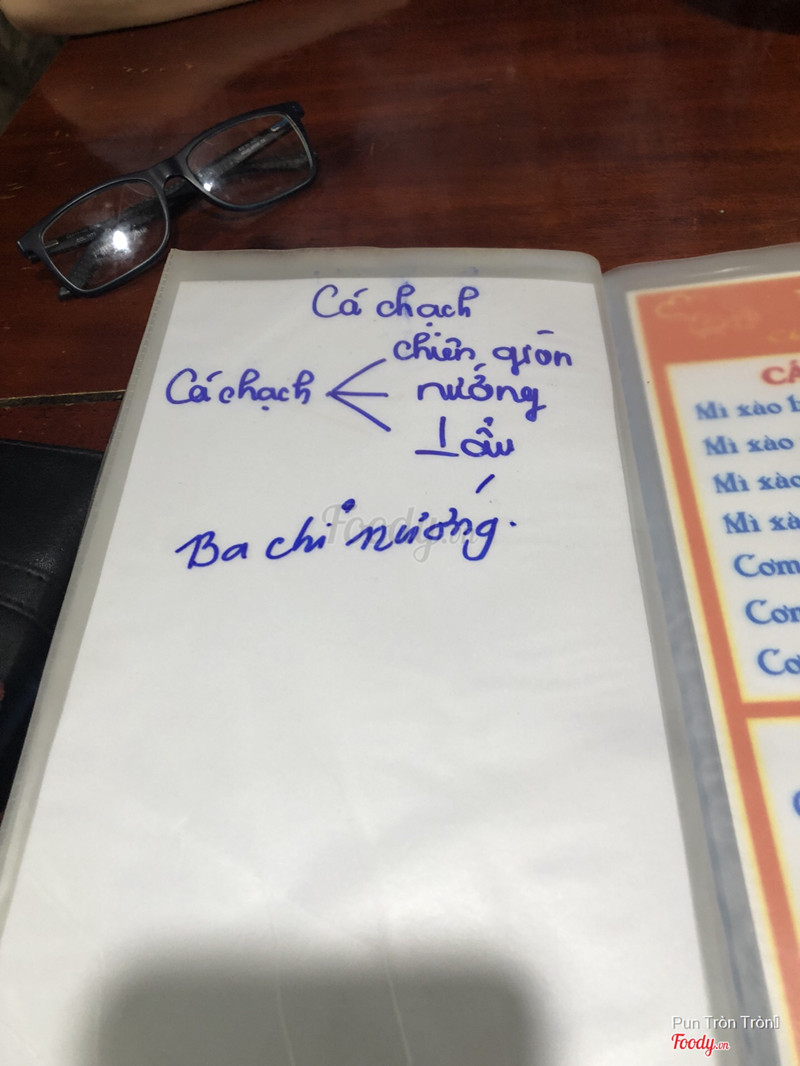 Cá chạch
Cá chạch
chiên giòn
nướng
Lẩu
Ba chỉ nướng.
Foody.vn
CÁ
Mì xào
Mì xào
Mì xào
Mì xà
Cơm
Pun Tròn Tròn
Foody.vn